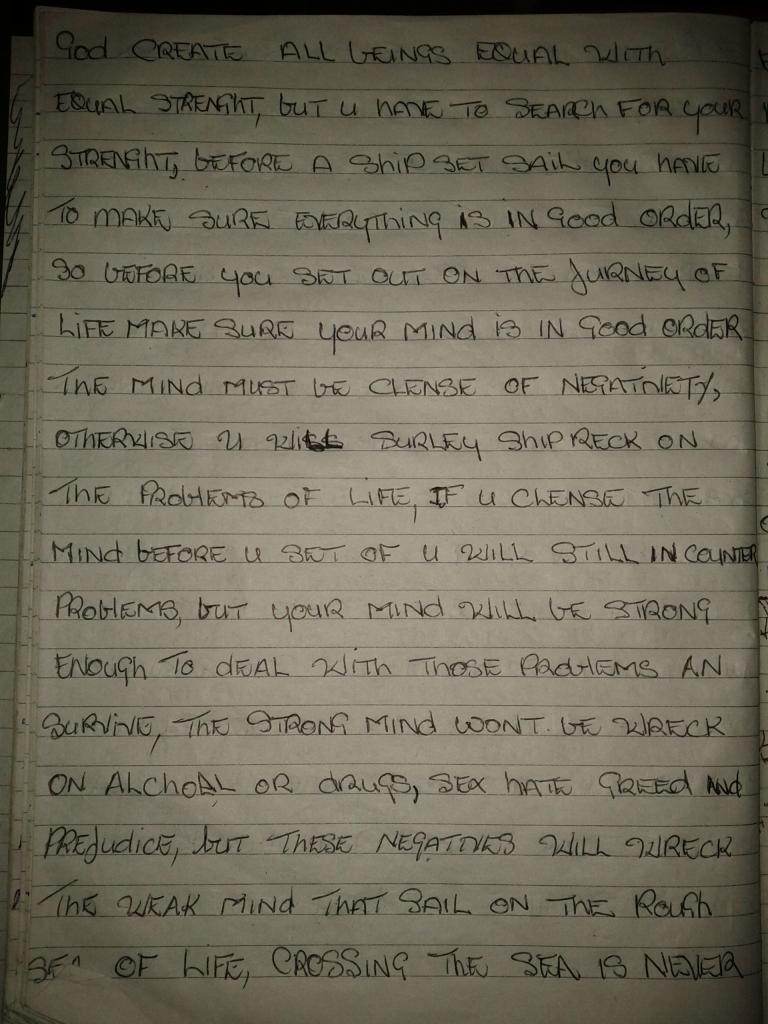 God CREATE ALL bEINGS EQUAL WITH
EQUAL STRENGHT, buT U HAVE TO SEARCH FOR yOUR
STRENGHT, bEFORE A ShiP SET SAIL yOU HAVE
TO MAKE SURE EVERYThING iS IN Good ORdER,
SO bEFORE yOU SET OUT ON THE JURNEY OF
LiFE MAKE SURE yOUR MIND iS IN Good ORdER
THE MINd MUST bE CLENSE OF NEGATIVETY,
OTHERWISE U WiLL SURLEY ShiP RECK ON
THE PRObLEMS OF LIFE, IF U CLENSE THE
MINd bEFORE U SET OF U WILL STILL INCOUNTER
PRObLEMS, buT yOUR MIND WILL bE STRONG
ENOUGh TO dEAL WITh THOSE PRObLEMS AN
SURVIVE, THE STRONG MIND WONT bE WRECK
ON ALChOAL OR dRUGS, SEX hATE GREEd ANd
PREJudICE, buT THESE NEGATIVES WILL WRECK
THE WEAK MINd THAT SAIL ON THE ROUGh
SEA OF LIFE, CROSSING THE SEA IS NEVER